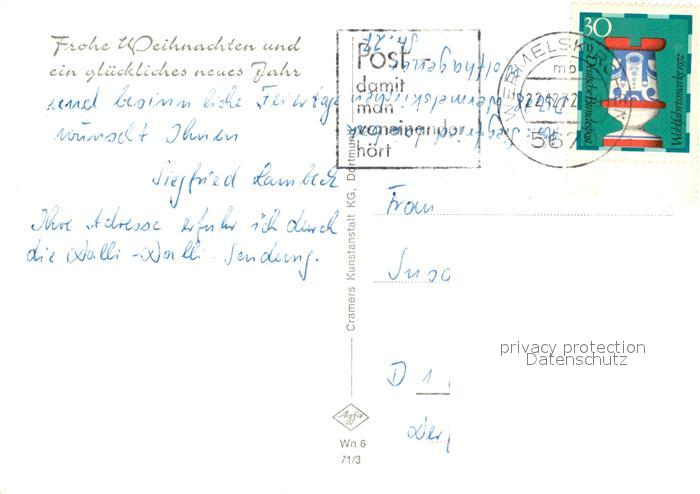 Frohe Weihnachten und
ein glückliches neues Jahr
und besinnliche Feiertage
wünscht Ihnen
Siegfried Lambeck
Ihre Adresse erfuhr ich durch
die Dalli-Dalli-Sendung.
Cramers Kunstanstalt KG, Dortmund
Agfa
Wn 6
71/3
Post-
damit
man
voneinander
hört
WERMELSKIRCHEN
mb
22.12.72
567
30
Deutsche Bundespost
Wohlfahrtsmarke
Siegfried
Wermelskirchen
Str. 27
Frau
Susa
D 1
privacy protection
Datenschutz